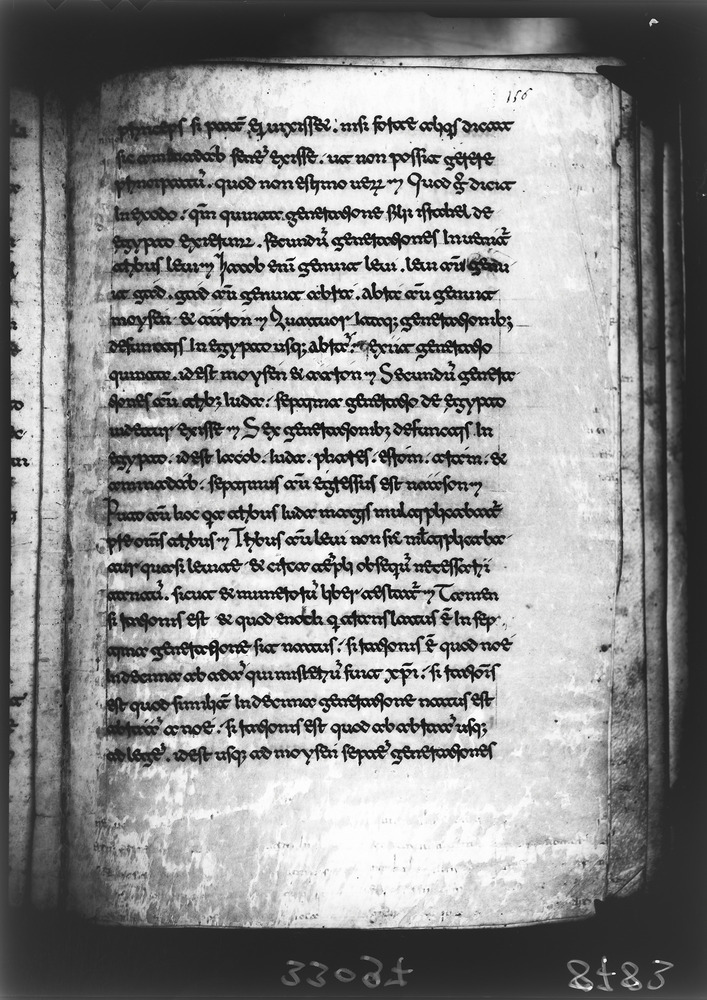 156
princeps si patrū eduxisset. nisi forte aliqs dicat
sic aminadab senē exisse. ut non possit gerere
principatū. quod non estimo uerū Quod g dicit
In exodo. qm quinta generatione filii israhel de
egypto exierunt. secundū generationes Inuenit̄
tribus leui Iacob eni genuit leui. leui aū genu
it gad. gad aū genuit abrā. abrā aū genuit
moysen & aaron Quattuor itaq; generationib;
defunctis In egypto usq; abrā. exiit generatio
quinta. idest moysen & aaron Secundū genera
tiones aū trib; iuda. septima generatio de egypto
uidetur exisse Sex generationib; defunctis In
egypto. idest iacob. iuda. phares. esrom. aram. &
aminadab. septimus aū egressus est naason
Puto aū hoc qa tribus iuda magis multiplicabat̄
pre oms tribus Tribus aū leui non sic multiplicaba
tur quasi leuitae & citra tēpli obsequiū necessarii
. sicut & numerorū liber testat̄ Tamen
si rationis est & quod enoch q translatus ē In sep
tima generatione sit natus. si rationis ē quod noe
In decima ab adā qui misteriū fuit xpi. si rationis
est quod similit̄ In decima generatione natus est
abrā a noe. si rationis est quod ab abrā usq;
ad legē. idest usq; ad moysen septē generationes
33087 8783